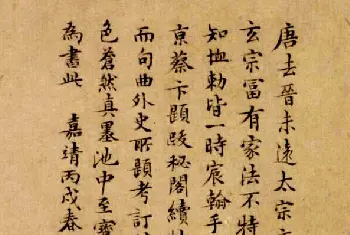 唐去晉未遠太宗
玄宗富有家法不特
知恤勅皆一時宸翰手
京蔡卞題跋秘閣續
而句曲外史所題考訂
色蒼然真墨池中至寶
為書此 嘉靖丙戌春